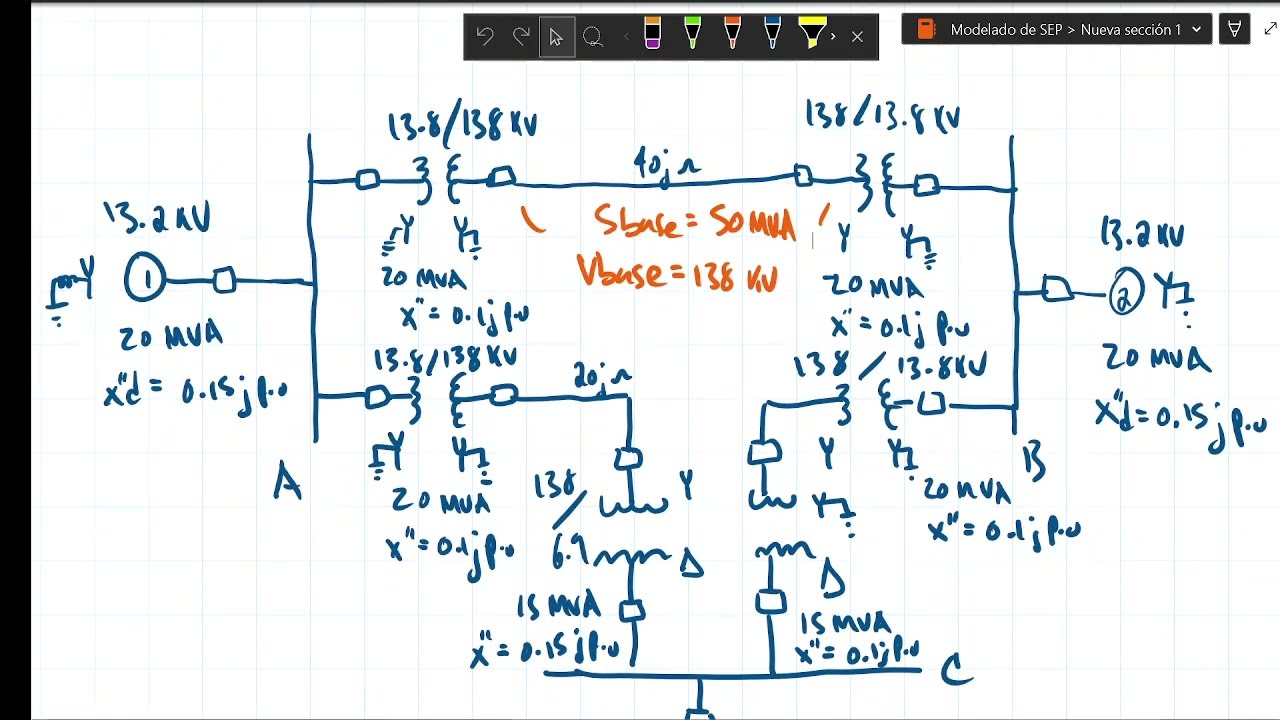 Modelado de SEP > Nueva sección 1
13.8/138 KV
138/13.8 KV
40j Ω
13.2 KV
Sbase = 50 MVA
Vbase = 138 KV
13.2 KV
Y
1
Y
Y
Y
Y
2
Y
20 MVA
x" = 0.1j p.u
20 MVA
x" = 0.1j p.u
20 MVA
x"d = 0.15j p.u
20 MVA
x"d = 0.15j p.u
13.8/138 KV
20j Ω
138 / 13.8 KV
Y
Y
Y
Y
A
B
20 MVA
x" = 0.1j p.u
138
/
6.9
Y
Y
20 MVA
x" = 0.1j p.u
Δ
Δ
15 MVA
x" = 0.15j p.u
15 MVA
x" = 0.1j p.u
C